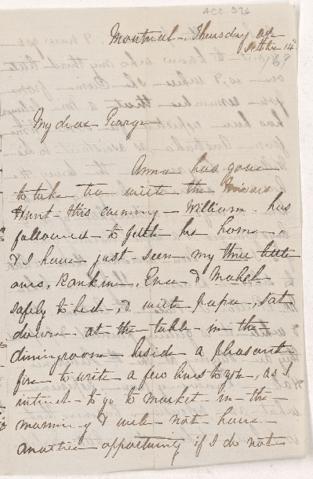 ACC 376
Montreal - Thursday
Octbre 14th
69
My dear George
Anna has gone
to take tea with the Misses
Hunt this evening - William has
followed to fetch her home -
& I have just seen my three little
ones, Rankine, Ence & Mabel
safely to bed, & with papa, sat
down at the table in the
diningroom - beside a pleasant
fire to write a few lines to you, as I
intend to go to market in the
morning & will not have
another opportunity if I do not